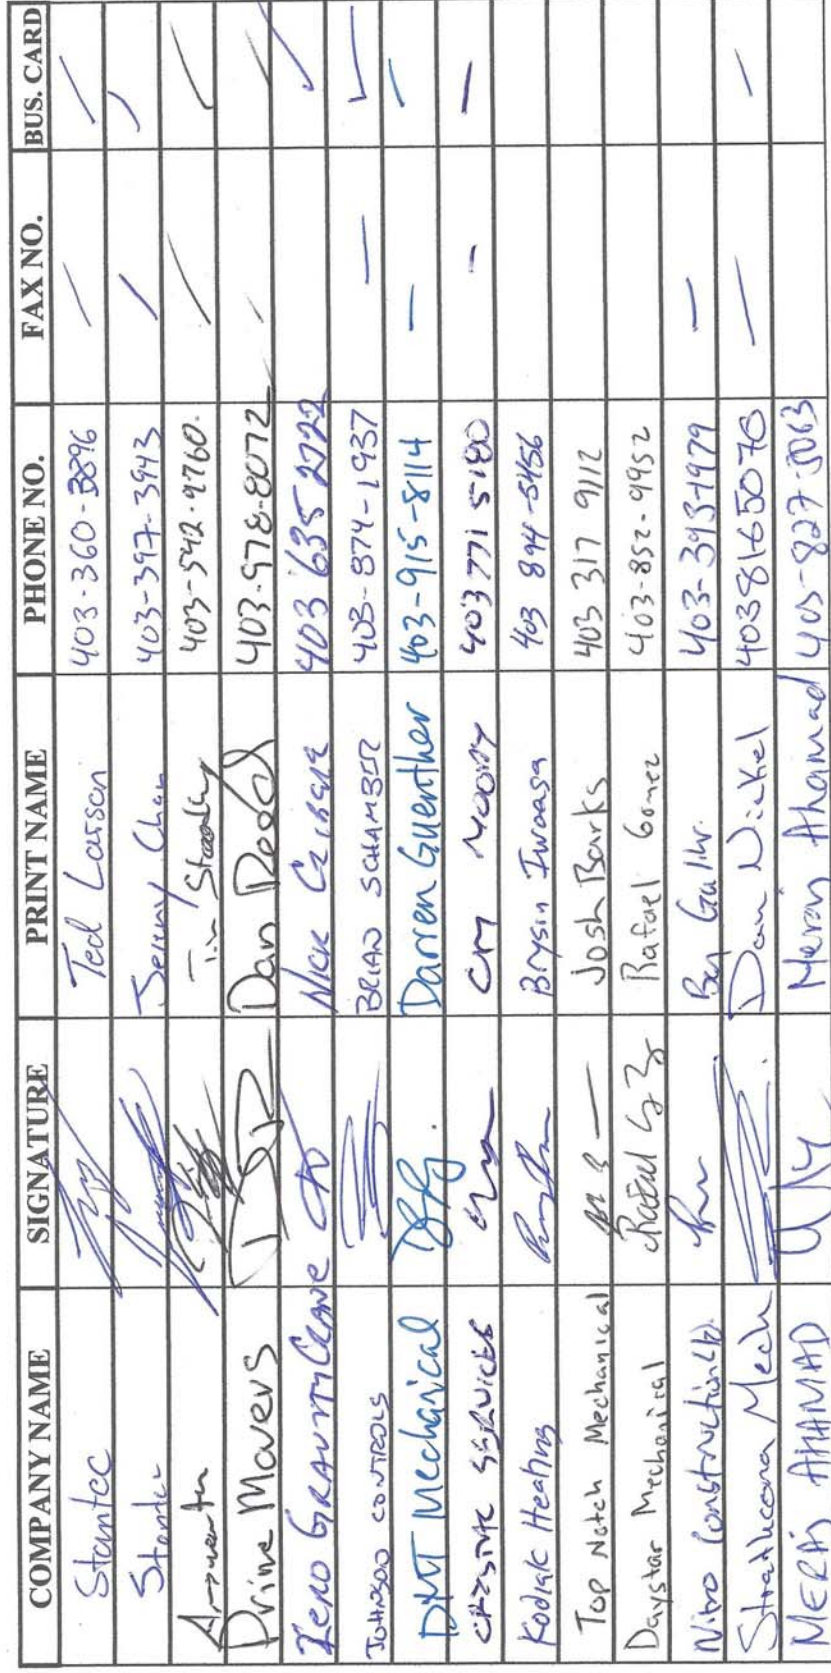 COMPANY NAME SIGNATURE PRINT NAME PHONE NO. FAX NO. BUS. CARD
Stantec Ted Larson 403-360-3896 — —
Stantec Jeremy Chan 403-397-3943 — —
Tim 403-542-9760. — —
Prime Movers Dan 403-978-8072 — —
Zero GRAVITY CRANE Nick 403 635 2722
JOHNSON CONTROLS BRIAN SCHAMBER 403-874-1937 —
DMT Mechanical Darren Guenther 403-915-8114 — —
SERVICES 403 771 5180 — —
Kodiak Heating Brysin Iwaasa 403 894-5456
Top Notch Mechanical Josh Barks 403 317 9112
Daystar Mechanical Rafael Gomez 403-852-9952
Nitro Construction Ltd. 403-393-1979 —
Strathcona Mech Dan Nickel 403 816 5070 — —
MERAJ AHAMAD Meraj Ahamad 403-827-